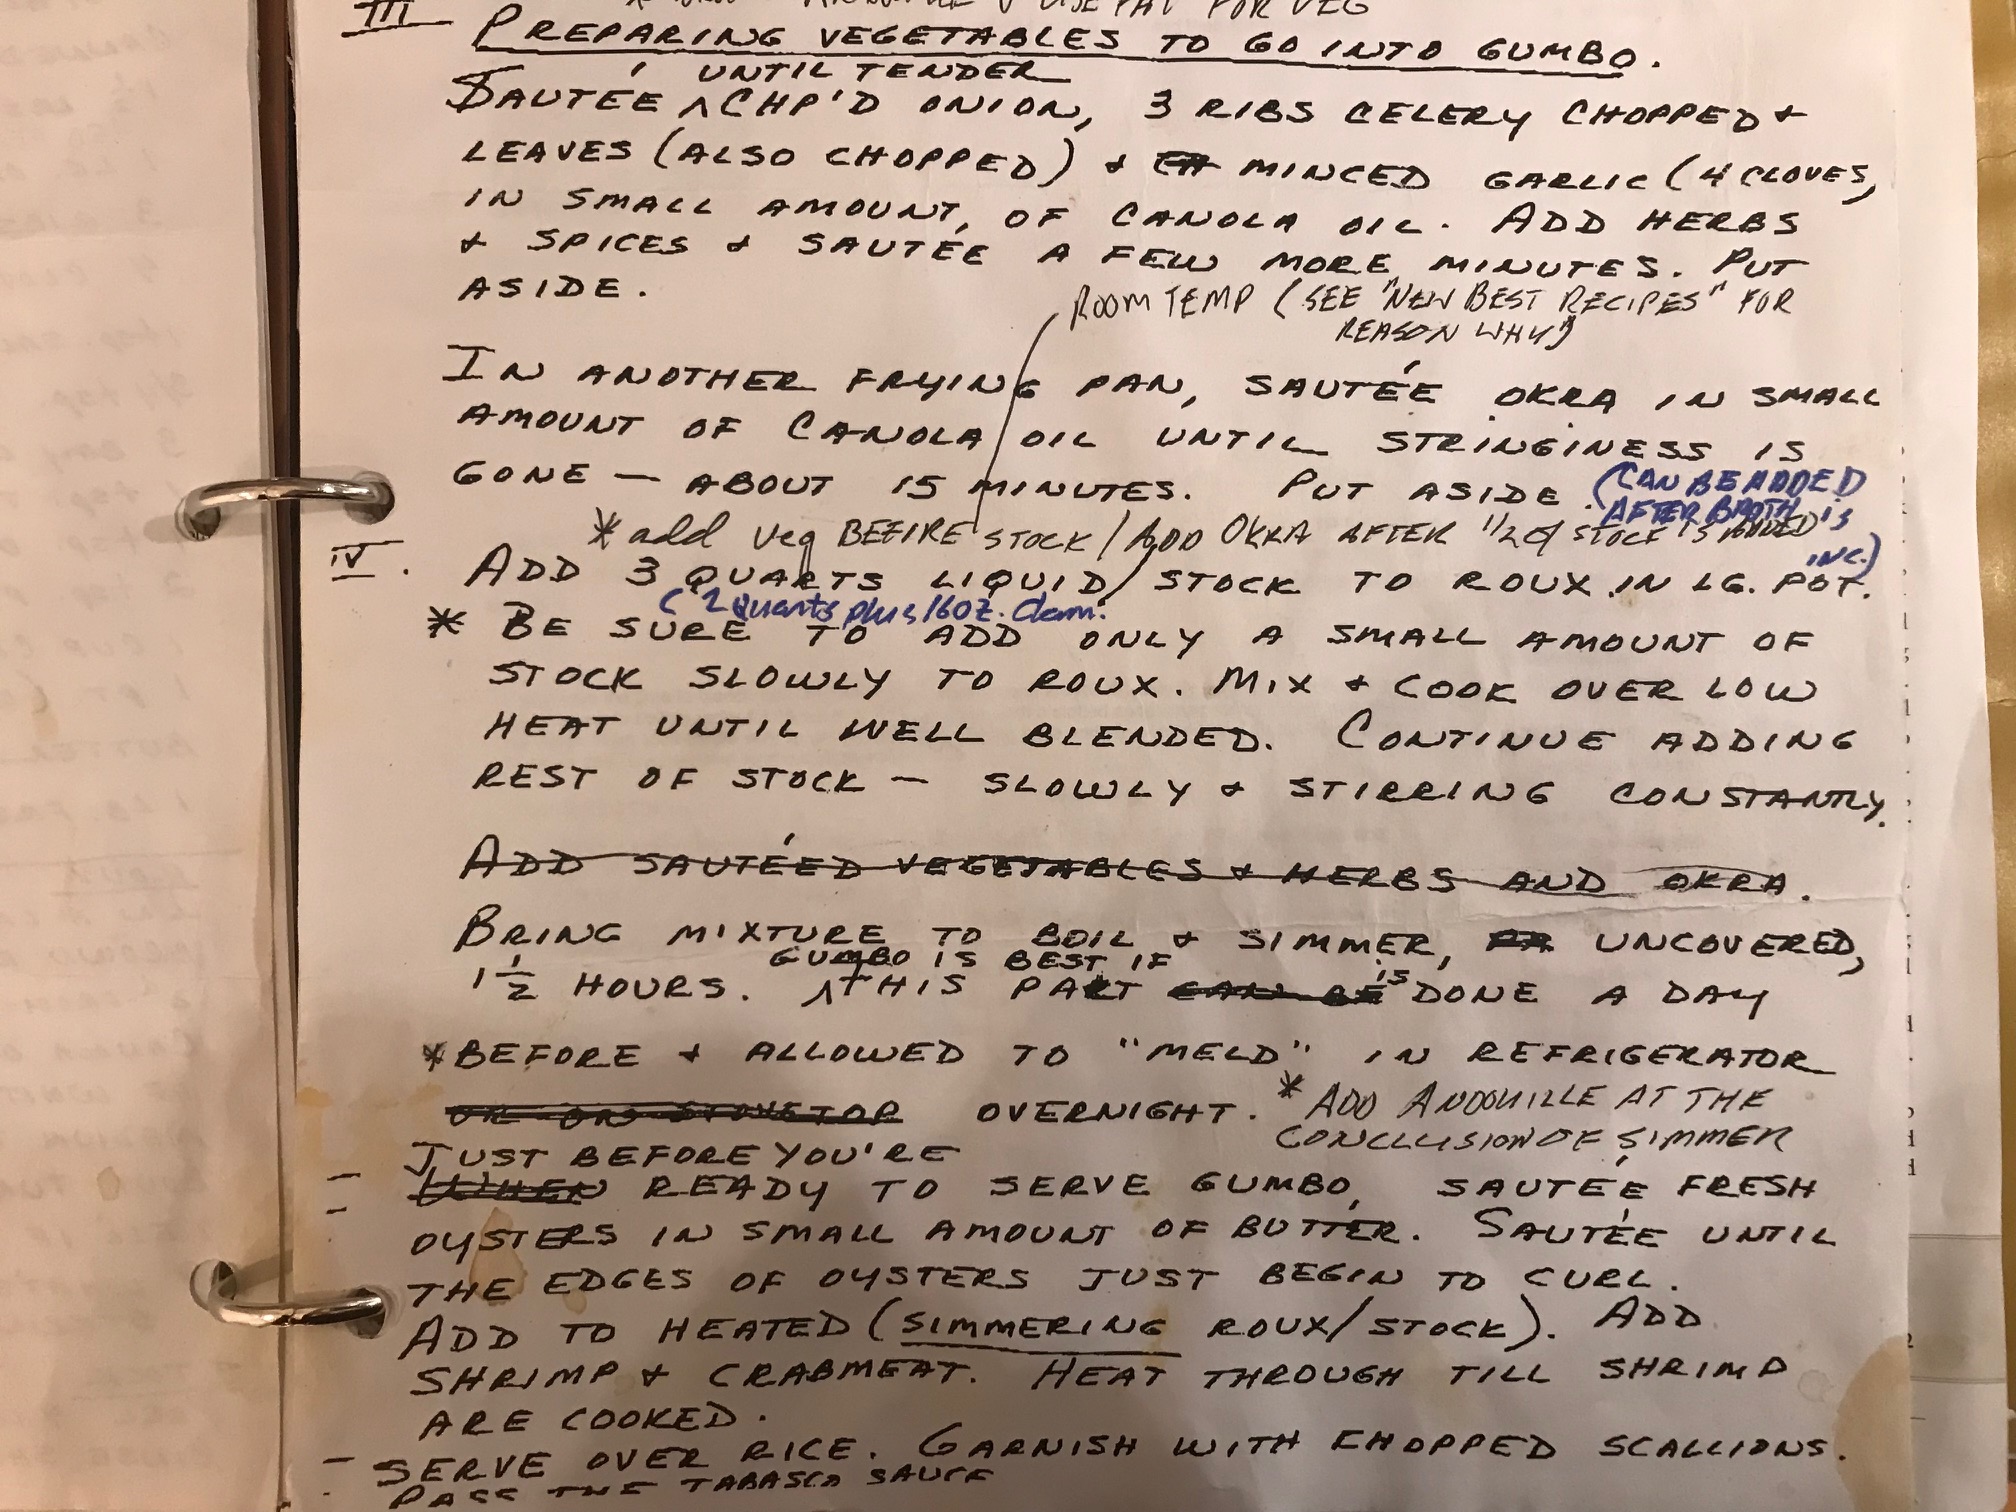 & USE FAT FOR VEG
III PREPARING VEGETABLES TO GO INTO GUMBO.
UNTIL TENDER
SAUTÉE ^ CHP'D ONION, 3 RIBS CELERY CHOPPED &
LEAVES (ALSO CHOPPED) & MINCED GARLIC (4 CLOVES,
IN SMALL AMOUNT, OF CANOLA OIL. ADD HERBS
& SPICES & SAUTÉE A FEW MORE MINUTES. PUT
ASIDE.
ROOM TEMP (SEE "NEW BEST RECIPES" FOR
REASON WHY)
IN ANOTHER FRYING PAN, SAUTÉE OKRA IN SMALL
AMOUNT OF CANOLA OIL UNTIL STRINGINESS IS
GONE — ABOUT 15 MINUTES. PUT ASIDE.
(CAN BE ADDED
AFTER BROTH IS
INC.)
* add veg BEFIRE STOCK / ADD OKRA AFTER 1/2 of STOCK IS ADDED
IV. ADD 3 QUARTS LIQUID/STOCK TO ROUX IN LG. POT.
(2 Quarts plus 16 oz. Clam.
* BE SURE TO ADD ONLY A SMALL AMOUNT OF
STOCK SLOWLY TO ROUX. MIX & COOK OVER LOW
HEAT UNTIL WELL BLENDED. CONTINUE ADDING
REST OF STOCK — SLOWLY & STIRRING CONSTANTLY.
ADD SAUTÉED VEGETABLES & HERBS AND OKRA.
BRING MIXTURE TO BOIL & SIMMER, UNCOVERED,
GUMBO IS BEST IF
1 1/2 HOURS. ^ THIS PART CAN BE IS DONE A DAY
* BEFORE & ALLOWED TO "MELD" IN REFRIGERATOR
OR ON STOVETOP OVERNIGHT. * ADD ANDOUILLE AT THE
CONCLUSION OF SIMMER
JUST BEFORE YOU'RE
- WHEN READY TO SERVE GUMBO, SAUTÉE FRESH
- OYSTERS IN SMALL AMOUNT OF BUTTER. SAUTÉE UNTIL
THE EDGES OF OYSTERS JUST BEGIN TO CURL.
ADD TO HEATED (SIMMERING ROUX/STOCK). ADD
SHRIMP & CRABMEAT. HEAT THROUGH TILL SHRIMP
ARE COOKED.
- SERVE OVER RICE. GARNISH WITH CHOPPED SCALLIONS.
- PASS THE TABASCO SAUCE